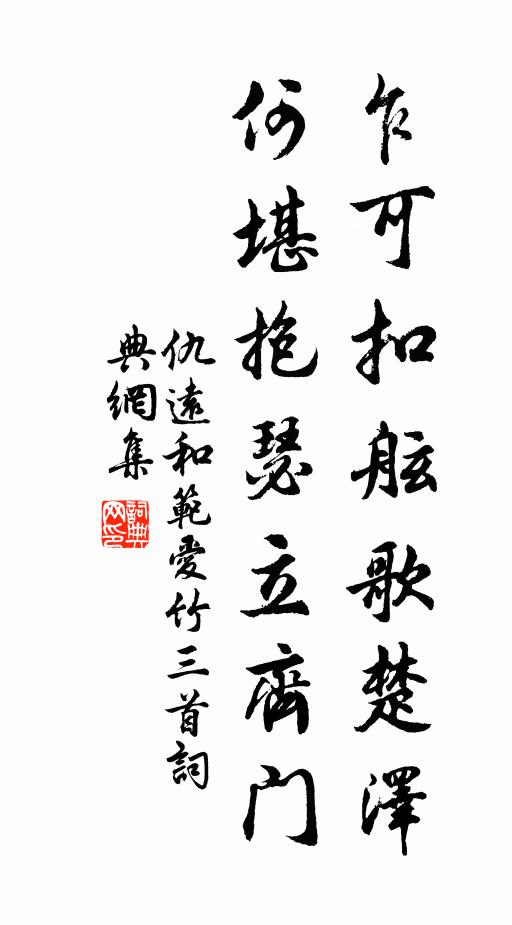 乍可扣舷歌楚澤
何堪抱瑟立齊門
仇遠和範愛竹三首詞
典網集
詞典
网印